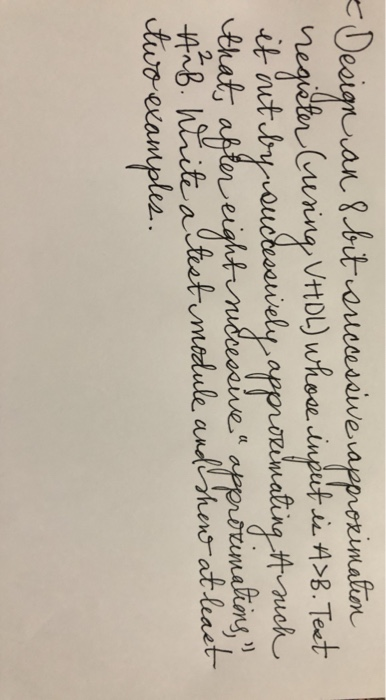 Design an 8 bit successive approximation
register (using VHDL) whose input is A>B. Test
it out by successively approximating A such
that, after eight successive "approximations,"
A²≈B. Write a test module and show at least
two examples.